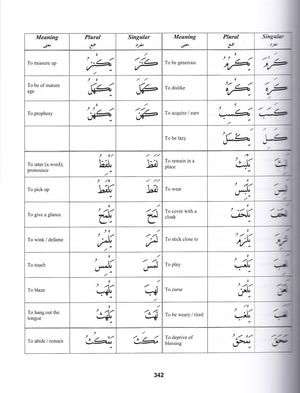 Meaning Plural Singular Meaning Plural Singular
معنى جمع مفرد معنى جمع مفرد
To treasure up يَكْنِزُ كَنَزَ To be generous يَكْرُمُ كَرُمَ
To be of mature age يَكْهَلُ كَهَلَ To dislike يَكْرَهُ كَرِهَ
To prophesy يَكْهَنُ كَهَنَ To acquire / earn يَكْسِبُ كَسَبَ
To be lazy يَكْسَلُ كَسِلَ
To utter (a word); pronounce يَلْفِظُ لَفَظَ To remain in a place يَلْبَثُ لَبِثَ
To pick up يَلْقُطُ لَقَطَ To wear يَلْبَسُ لَبِسَ
To give a glance يَلْمَحُ لَمَحَ To cover with a cloak يَلْحَفُ لَحَفَ
To wink / defame يَلْمِزُ لَمَزَ To stick close to يَلْزَمُ لَزِمَ
To touch يَلْمِسُ لَمَسَ To play يَلْعَبُ لَعِبَ
To blaze يَلْهَبُ لَهِبَ To curse يَلْعَنُ لَعَنَ
To hang out the tongue يَلْهَثُ لَهَثَ To be weary / tired يَلْغَبُ لَغَبَ
To abide / remain يَمْكُثُ مَكَثَ To deprive of blessing يَمْحَقُ مَحَقَ
342